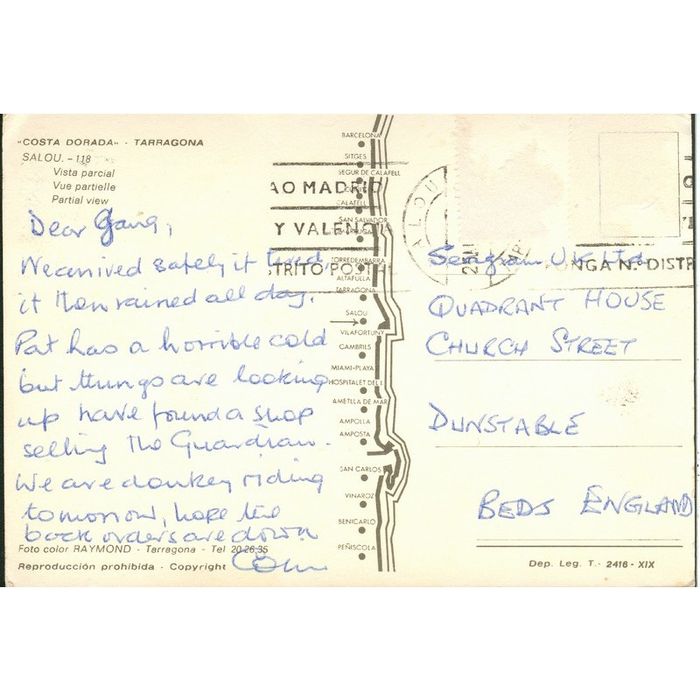 "COSTA DORADA" - TARRAGONA
SALOU. - 118
Vista parcial
Vue partielle
Partial view
Dear Gang,
We arrived safely it
it then rained all day.
Pat has a horrible cold
but things are looking
up have found a shop
selling The Guardian.
We are donkey riding
tomorrow, hope the
back orders are down
Colin
Foto color RAYMOND - Tarragona - Tel 20.26.35
Reproducción prohibida - Copyright
BARCELONA
SITGES
SEGUR DE CALAFELL
CALAFELL
SAN SALVADOR
TORREDEMBARRA
ALTAFULLA
TARRAGONA
SALOU
VILAFORTUNY
CAMBRILS
MIAMI-PLAYA
HOSPITALET DEL I
AMETLLA DE MAR
AMPOLLA
AMPOSTA
SAN CARLOS
VINAROZ
BENICARLO
PEÑISCOLA
AO MADRID
Y VALENC
STRITO POST
ALOU
ONGA N.º DISTR
Seagram UK Ltd
QUADRANT HOUSE
CHURCH STREET
DUNSTABLE
BEDS ENGLAND
Dep. Leg. T.- 2416 - XIX